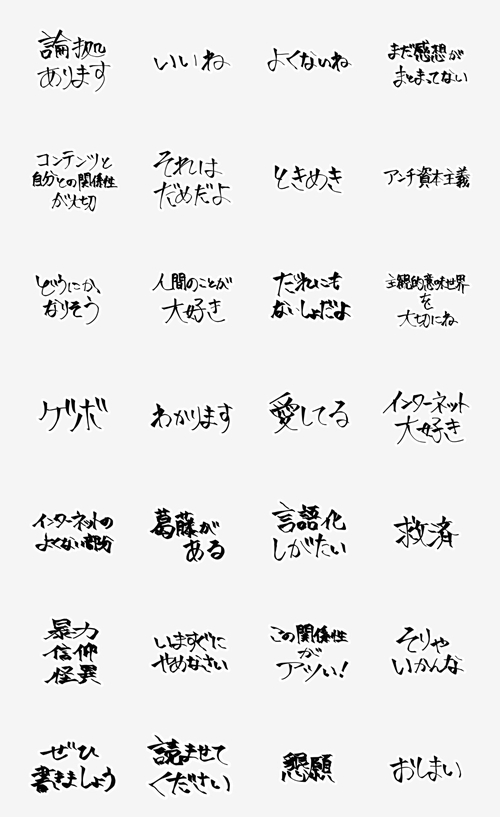 論拠
あります
いいね
よくないね
まだ感想が
まとまってない
コンテンツと
自分との関係性
が大切
それは
だめだよ
ときめき
アンチ資本主義
どうにか、
なりそう
人間のことが
大好き
だれにも
ないしょだよ
主観的意味世界
を
大切にね
ゲツボ
わかります
愛してる
インターネット
大好き
インターネットの
よくない部分
葛藤が
ある
言語化
しがたい
救済
暴力
信仰
怪異
いますぐに
やめなさい
この関係性
が
アツい!
そりゃ
いかんな
ぜひ
書きましょう
読ませて
ください
懇願
おしまい